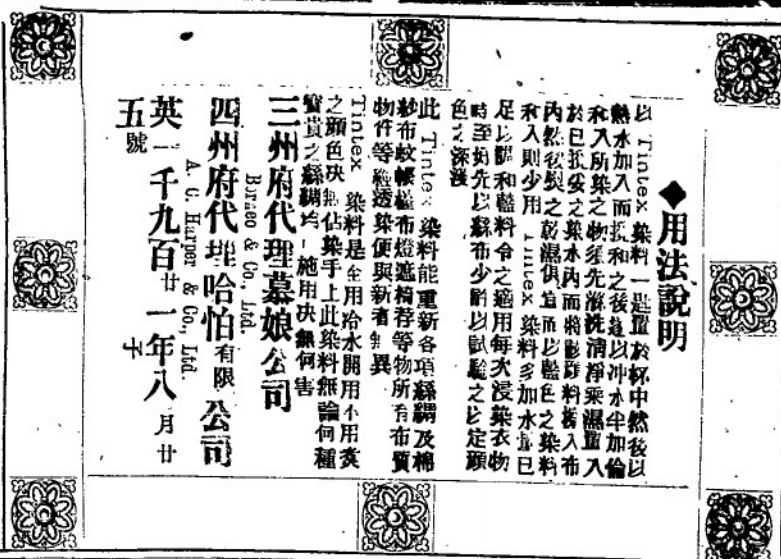 ◆用法說明
以 Tintex 染料一匙置於杯中然後以
熱水加入而和之後以冲水半加倫
和入所染之物須先滌洗清淨乘濕置入
於已妥之染水內而將料入布
內然後熨之乾濕俱而以藍色之染料
和入則少用 Tintex 染料多加水量已
足以調和藍料令之適用每次浸染衣物
時至好先以布少許以試驗之以定顏
色之深淺
此 Tintex 染料能重新各項絲綢及棉
紗布蚊帳檯布燈遮椅荐等物所有布質
物件等經透染便與新者無異
Tintex 染料是全用冷水開用不用煲
之顏色决無佔染手上此染料無論何種
寶貴之絲綢均施用决無何害
三州府代理慕娘公司
Borneo & Co., Ltd.
四州府代理哈怕有限公司
A. C. Harper & Co., Ltd.
英一千九百廿一年八月廿
五號 子